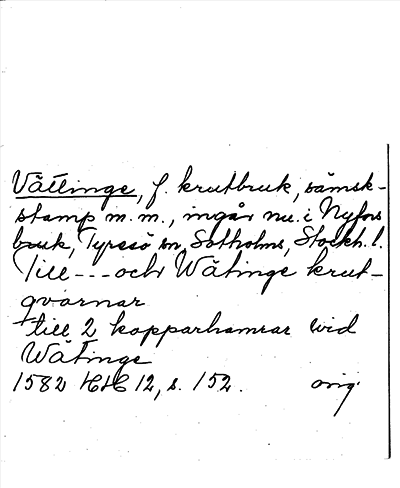 Vättinge, f. krutbruk, sämsk-
stamp m. m., ingår nu i Nyfors
bruk, Tyresö sn, Sotholms, Stockh. l.
Till --- och Wätinge krut-
qvarnar
till 2 kopparhamrar wid
Wätinge
1582 HH 12, s. 152. orig.